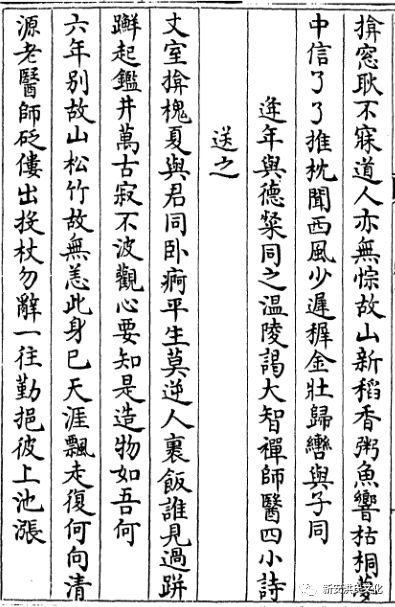 揜窓耿不寐道人亦無悰故山新稻香粥魚響枯桐夢
中信了了推枕聞西風少遲樨金壯歸轡與子同
逢年與德粲同之温陵謁大智禪師醫四小詩
送之
丈室揜槐夏與君同卧痾平生莫逆人裹飯誰見過跰
䠥起鑑井萬古寂不波觀心要知是造物如吾何
六年别故山松竹故無恙此身已天涯飄走復何向清
源老醫師砭僂出投杖勿辭一往勤挹彼上池漲
新安洪氏文化